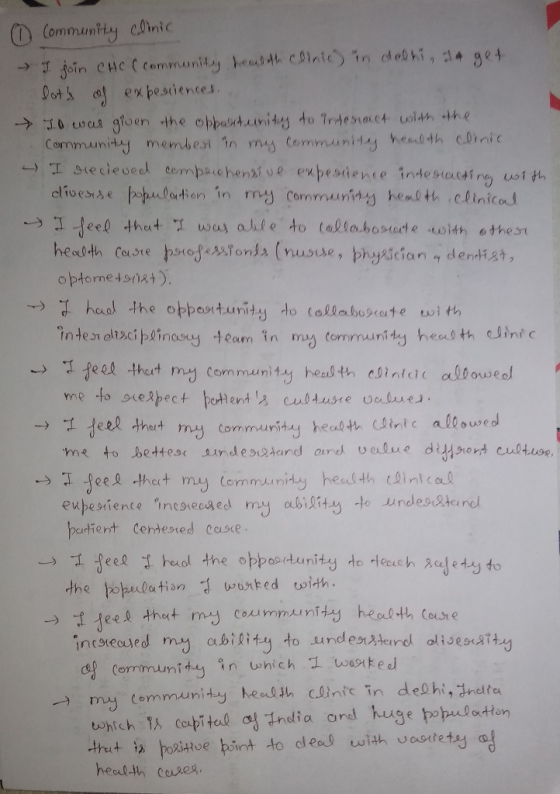 ① Community Clinic
→ I join CHC (community health clinic) in delhi, It get
lots of experiences.
→ It was given the opportunity to interact with the
Community member in my community health clinic
→ I recieved comprehensive experience interacting with
diverse population in my community health clinical
→ I feel that I was able to collaborate with other
health care professionls (nurse, physician, dentist,
optometrist).
→ I had the opportunity to collaborate with
interdisciplinary team in my community health clinic
→ I feel that my community health clinicic allowed
me to respect patient's culture values.
→ I feel that my community health clinic allowed
me to better understand and value diffrent culture.
→ I feel that my community health clinical
experience increased my ability to understand
patient centered care.
→ I feel I had the opportunity to teach safety to
the population I worked with.
→ I feel that my coummunity health care
increased my ability to understand diversity
of community in which I worked
→ my community health clinic in delhi, India
which is capital of India and huge population
that is positive point to deal with variety of
health cares.